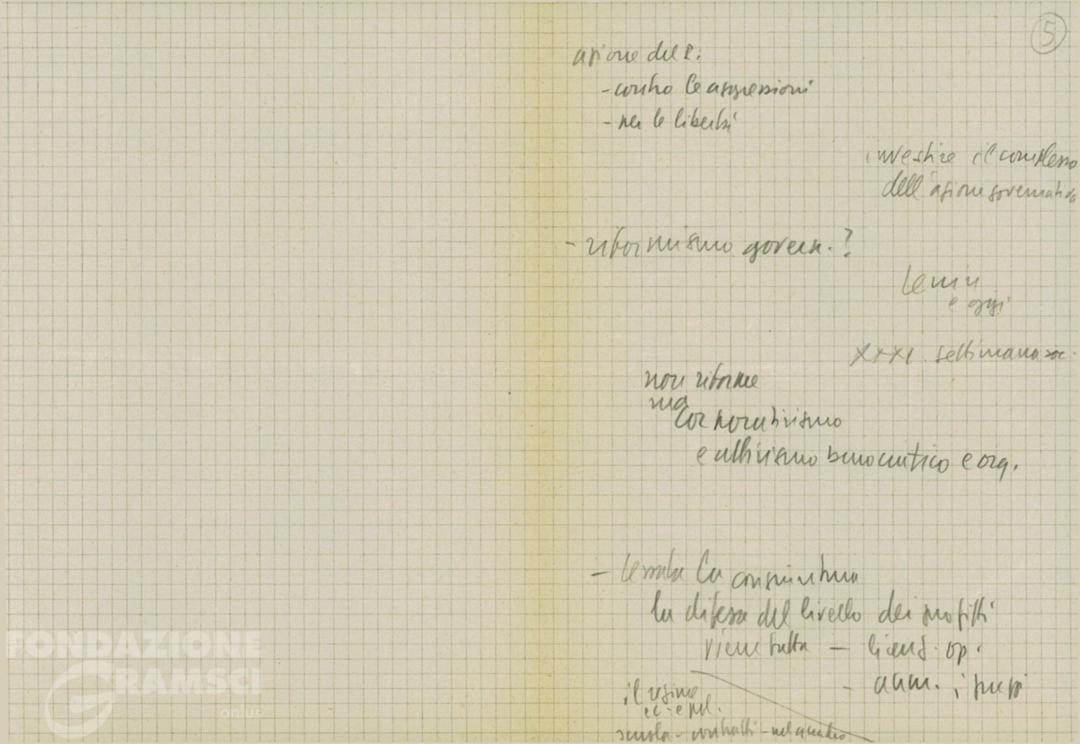 5
azione del P.
- contro le aggressioni
- per le libertà
investire il complesso
dell'azione governativa
- riformismo govern.?
Lenin
e oggi
XXXI settimana soc.
non riforme
ma
corporativismo
e attivismo burocratico e org.
- la congiuntura
la difesa del livello dei profitti
viene fatta - licenz. op.
- aum. i prezzi
il regime
scuola - contratti -
FONDAZIONE
GRAMSCI